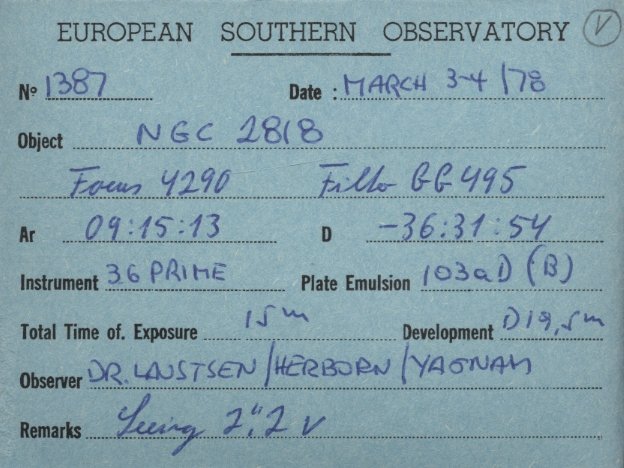 EUROPEAN SOUTHERN OBSERVATORY V
Nº 1387 Date : MARCH 3-4/78
Object NGC 2818
Focus 4290 Filter GG 495
Ar 09:15:13 D -36:31:54
Instrument 3.6 PRIME Plate Emulsion 103aD (B)
Total Time of. Exposure 15m Development D19, 5m
Observer DR. LAUSTSEN/HERBORN/YAGNAM
Remarks Seeing 2".2 V